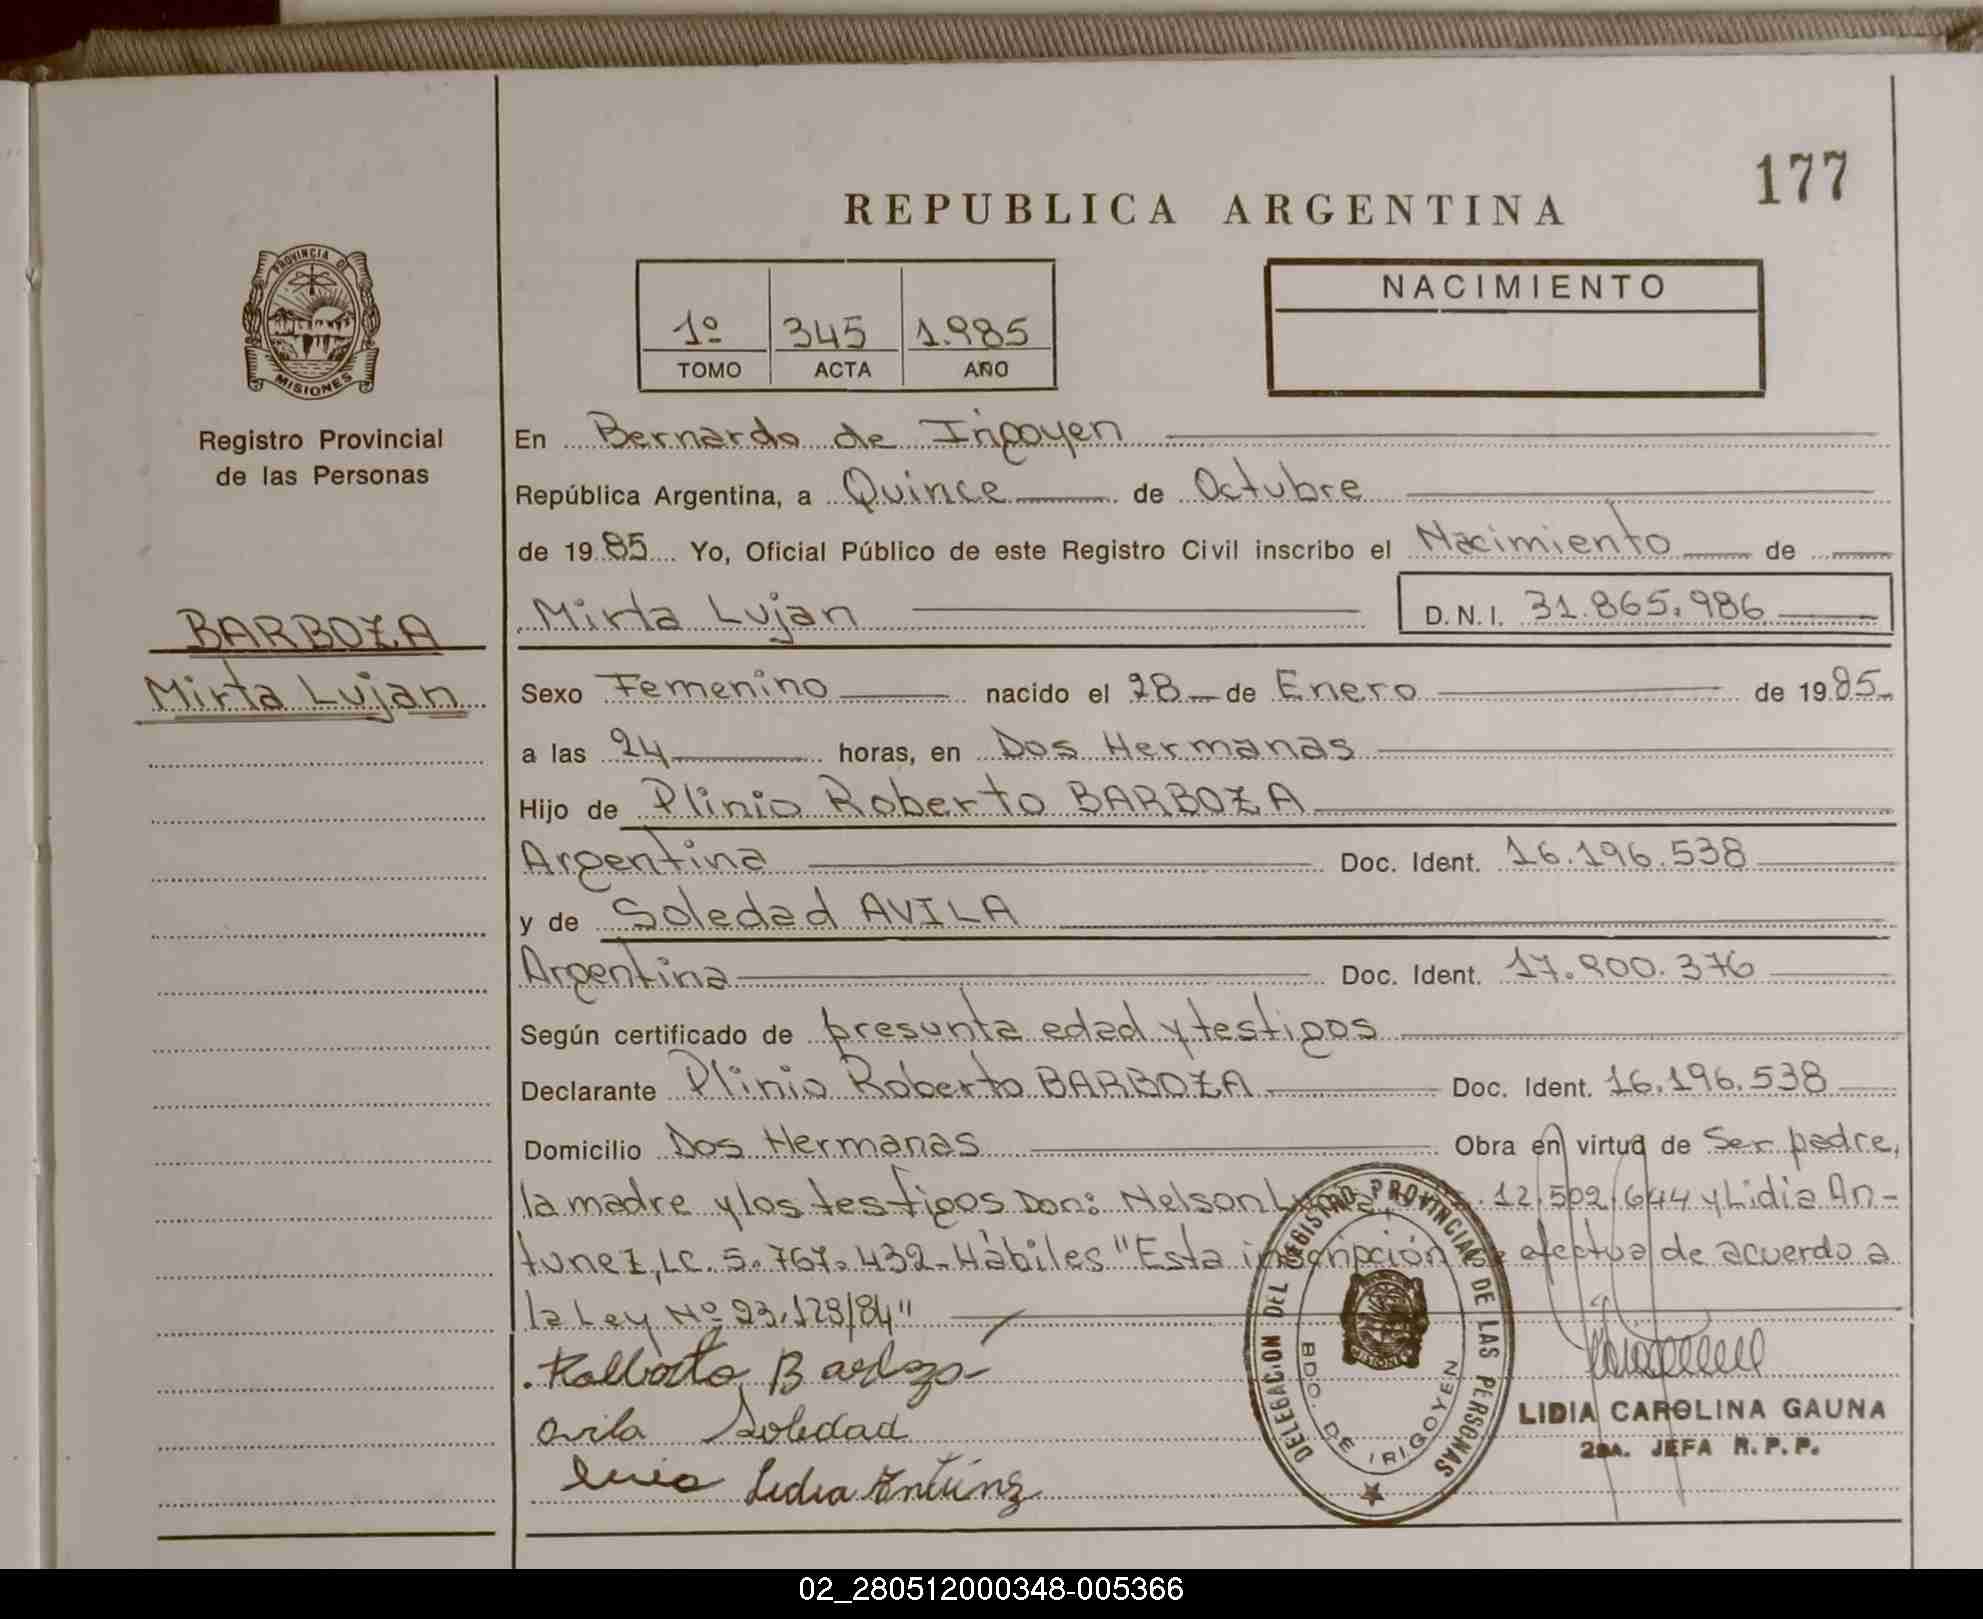 177
REPUBLICA ARGENTINA
PROVINCIA DE
MISIONES
Registro Provincial
de las Personas
1º 345 1.985
TOMO ACTA AÑO
NACIMIENTO
En Bernardo de Irigoyen
República Argentina, a Quince de Octubre
de 1985 Yo, Oficial Público de este Registro Civil inscribo el Nacimiento de
Mirta Lujan D.N.I. 31.865.986
BARBOZA
Mirta Lujan
Sexo Femenino nacido el 28 de Enero de 1985
a las 24 horas, en Dos Hermanas
Hijo de Plinio Roberto BARBOZA
Argentina Doc. Ident. 16.196.538
y de Soledad AVILA
Argentina Doc. Ident. 17.900.376
Según certificado de presunta edad y testigos
Declarante Plinio Roberto BARBOZA Doc. Ident. 16.196.538
Domicilio Dos Hermanas Obra en virtud de Ser padre,
la madre y los testigos Don: Nelson 12.502.644 y Lidia An-
tunez, LC. 5.767.432. Hábiles "Esta inscripción se efectua de acuerdo a
la Ley Nº 23.128/84"
Roberto Barboza
avila Soledad
Lidia Antunez
DELEGACION DEL REGISTRO PROVINCIAL DE LAS PERSONAS
BDO. DE IRIGOYEN
MISIONES
LIDIA CAROLINA GAUNA
2DA. JEFA R.P.P.
02_280512000348-005366